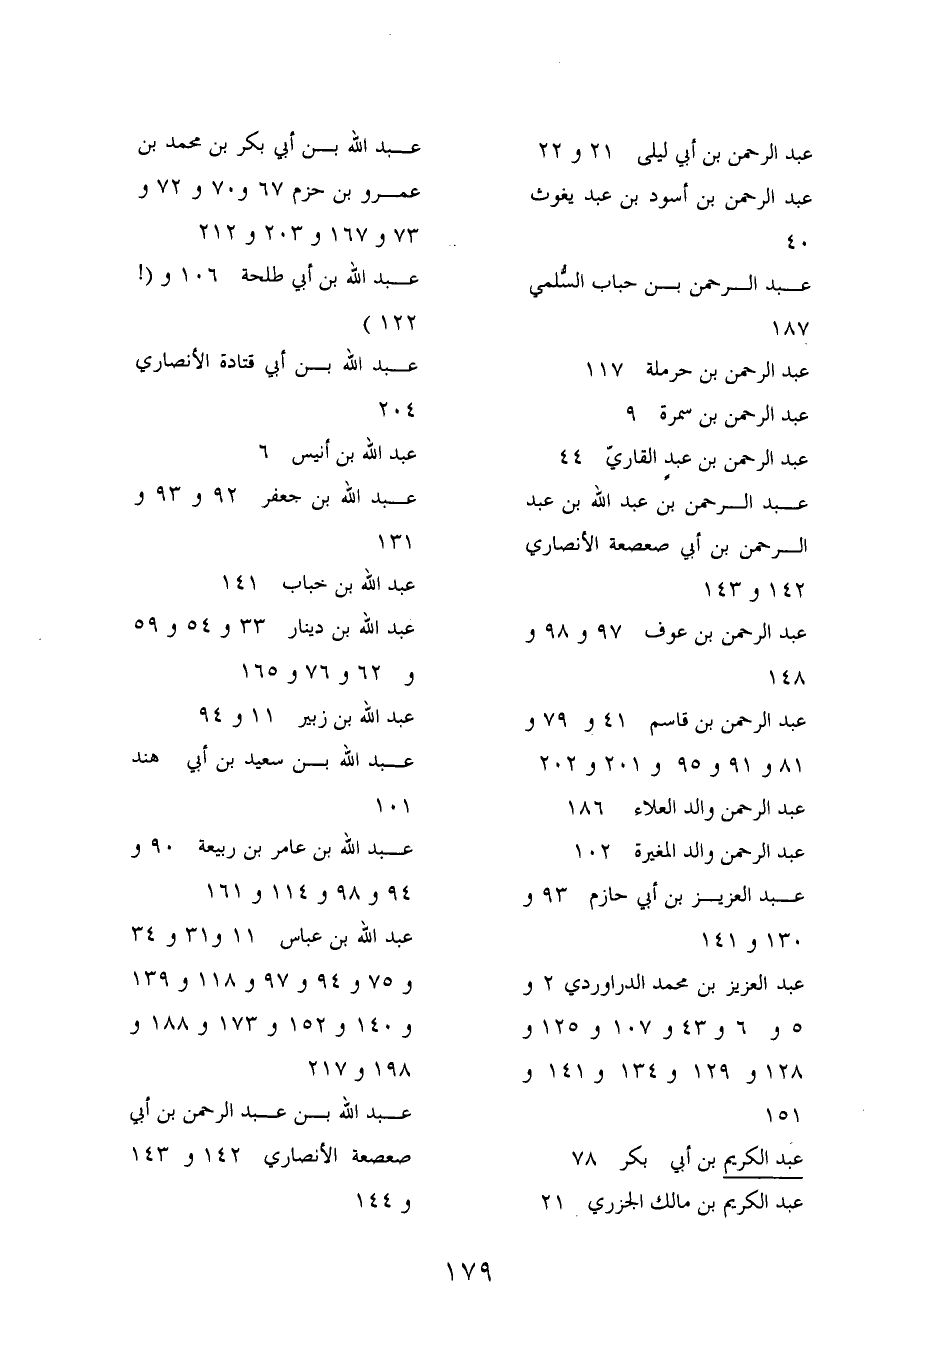 عبد الرحمن بن أبي ليلى ٢١ و ٢٢
عبد الرحمن بن أسود بن عبد يغوث
٤٠
عبد الرحمن بن حباب السُّلمي
١٨٧
عبد الرحمن بن حرملة ١١٧
عبد الرحمن بن سمرة ٩
عبد الرحمن بن عبدٍ القاريّ ٤٤
عبد الرحمن بن عبد الله بن عبد
الرحمن بن أبي صعصعة الأنصاري
١٤٢ و ١٤٣
عبد الرحمن بن عوف ٩٧ و ٩٨ و
١٤٨
عبد الرحمن بن قاسم ٤١ و ٧٩ و
٨١ و ٩١ و ٩٥ و ٢٠١ و ٢٠٢
عبد الرحمن والد العلاء ١٨٦
عبد الرحمن والد المغيرة ١٠٢
عبد العزيز بن أبي حازم ٩٣ و
١٣٠ و ١٤١
عبد العزيز بن محمد الدراوردي ٢ و
٥ و ٦ و ٤٣ و ١٠٧ و ١٢٥ و
١٢٨ و ١٢٩ و ١٣٤ و ١٤١ و
١٥١
عبد الكريم بن أبي بكر ٧٨
عبد الكريم بن مالك الجزري ٢١
عبد الله بن أبي بكر بن محمد بن
عمرو بن حزم ٦٧ و٧٠ و ٧٢ و
٧٣ و ١٦٧ و ٢٠٣ و ٢١٢
عبد الله بن أبي طلحة ١٠٦ و (!
١٢٢ )
عبد الله بن أبي قتادة الأنصاري
٢٠٤
عبد الله بن أنيس ٦
عبد الله بن جعفر ٩٢ و ٩٣ و
١٣١
عبد الله بن خباب ١٤١
عبد الله بن دينار ٣٣ و ٥٤ و ٥٩
و ٦٢ و ٧٦ و ١٦٥
عبد الله بن زبير ١١ و ٩٤
عبد الله بن سعيد بن أبي هند
١٠١
عبد الله بن عامر بن ربيعة ٩٠ و
٩٤ و ٩٨ و ١١٤ و ١٦١
عبد الله بن عباس ١١ و٣١ و ٣٤
و ٧٥ و ٩٤ و ٩٧ و ١١٨ و ١٣٩
و ١٤٠ و ١٥٢ و ١٧٣ و ١٨٨ و
١٩٨ و ٢١٧
عبد الله بن عبد الرحمن بن أبي
صعصعة الأنصاري ١٤٢ و ١٤٣
و ١٤٤
١٧٩